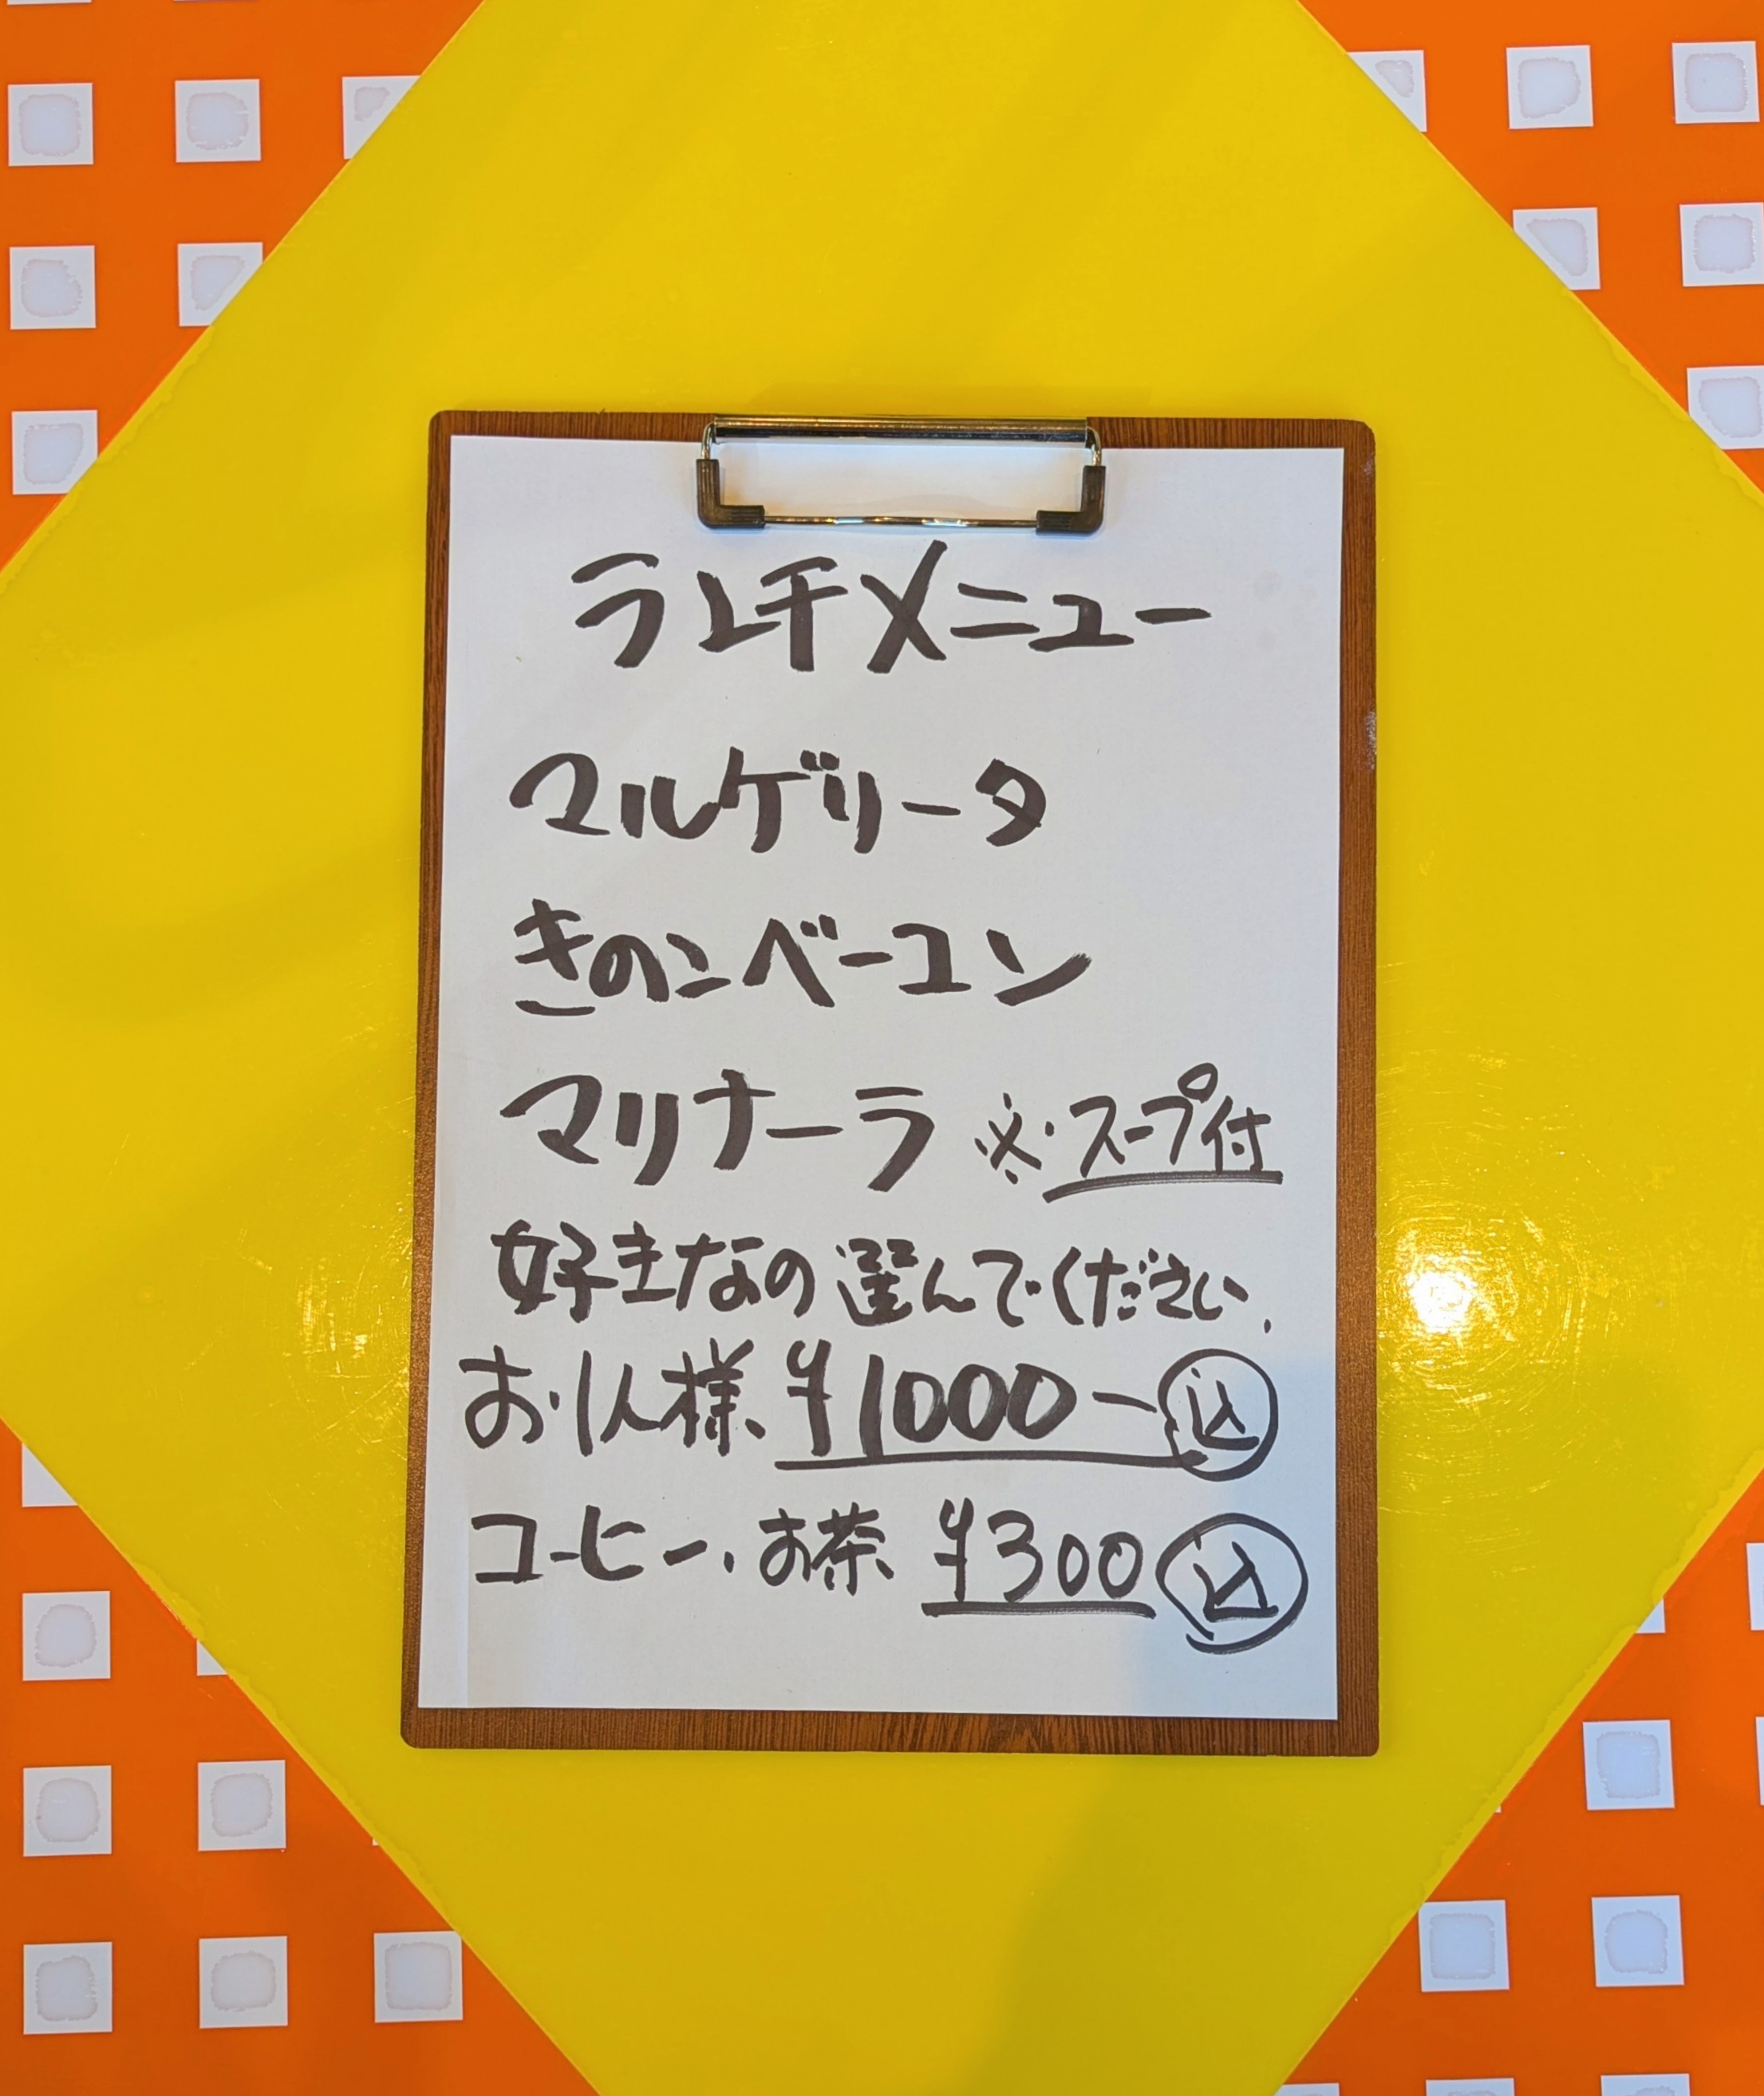 ランチメニュー
マルゲリータ
きのこベーコン
マリナーラ ※スープ付
好きなの選んでください.
お1人様 ¥1000ー込
コーヒー・お茶 ¥300込